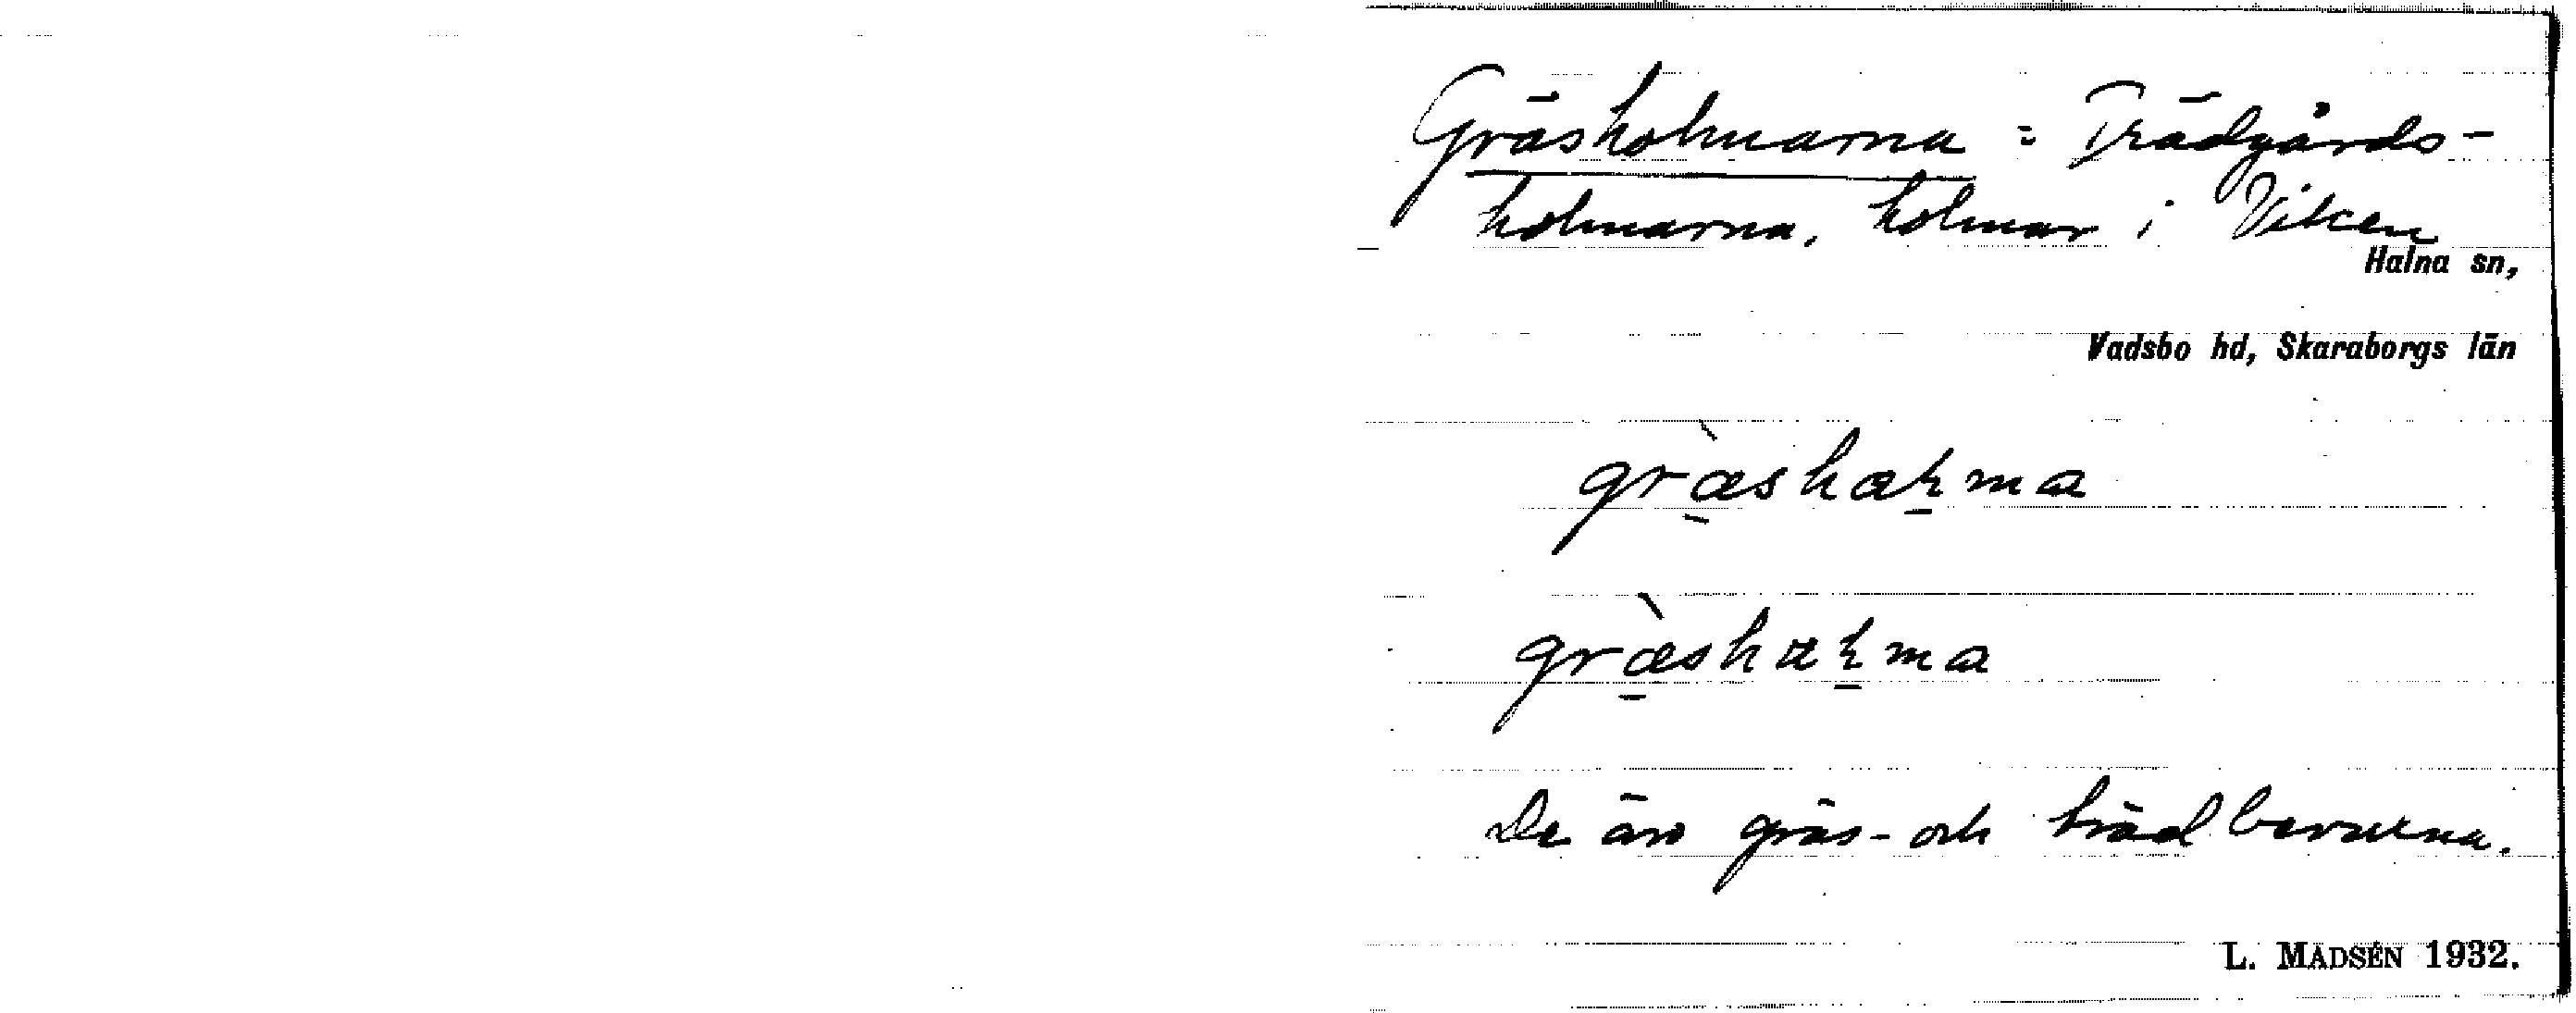 Gräsholmarna = Trädgårds-
holmarna, holmar i Viken
Halna sn,
Vadsbo hd, Skaraborgs län
De äro gräs- och trädbevuxna.
L. MADSÉN 1932.